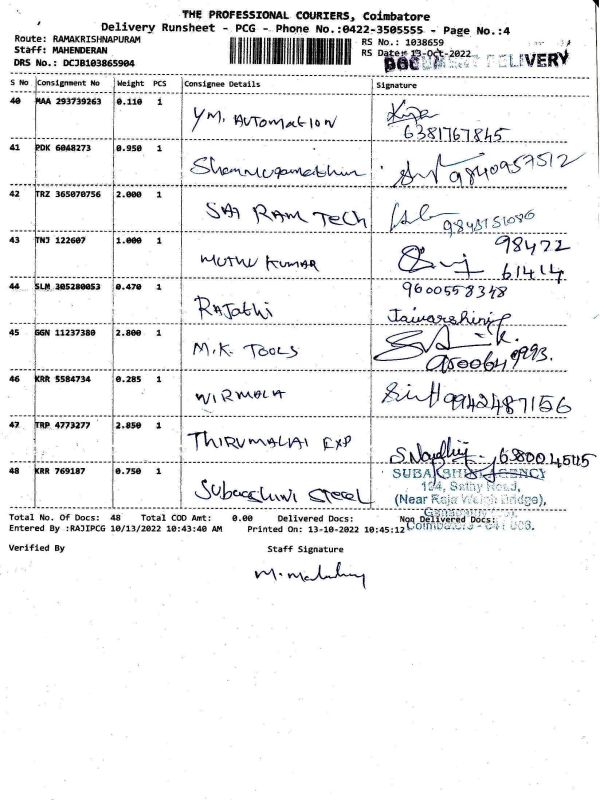 THE PROFESSIONAL COURIERS, Coimbatore
Delivery Runsheet - PCG - Phone No.:0422-3505555 - Page No.:4
Route: RAMAKRISHNAPURAM RS No.: 1038659
Staff: MAHENDERAN RS Date: 13-Oct-2022
DRS No.: DCJB103865904 DOCUMENT DELIVERY
S No Consignment No Weight PCS Consignee Details Signature
40 MAA 293739263 0.110 1 YM. AUTOMATION
6381767845
41 PDK 6048273 0.950 1 9840957512
42 TRZ 365070756 2.000 1 SAI RAM TECH
43 TNJ 122607 1.000 1 MUTHU KUMAR 98472
61414
44 SLM 305280053 0.470 1 Rajathi 9600558348
45 GGN 11237380 2.800 1 M.K. TOOLS
46 KRR 5584734 0.285 1 NIRMALA 9942487156
47 TRP 4773277 2.850 1 THIRUMALAI EXP
48 KRR 769187 0.750 1 Subaashini Steel SUBAASHINI AGENCY
134, Sathy Road,
(Near Raja Weigh Bridge),
Total No. Of Docs: 48 Total COD Amt: 0.00 Delivered Docs: Non Delivered Docs:
Entered By :RAJIPCG 10/13/2022 10:43:40 AM Printed On: 13-10-2022 10:45:12
Verified By Staff Signature